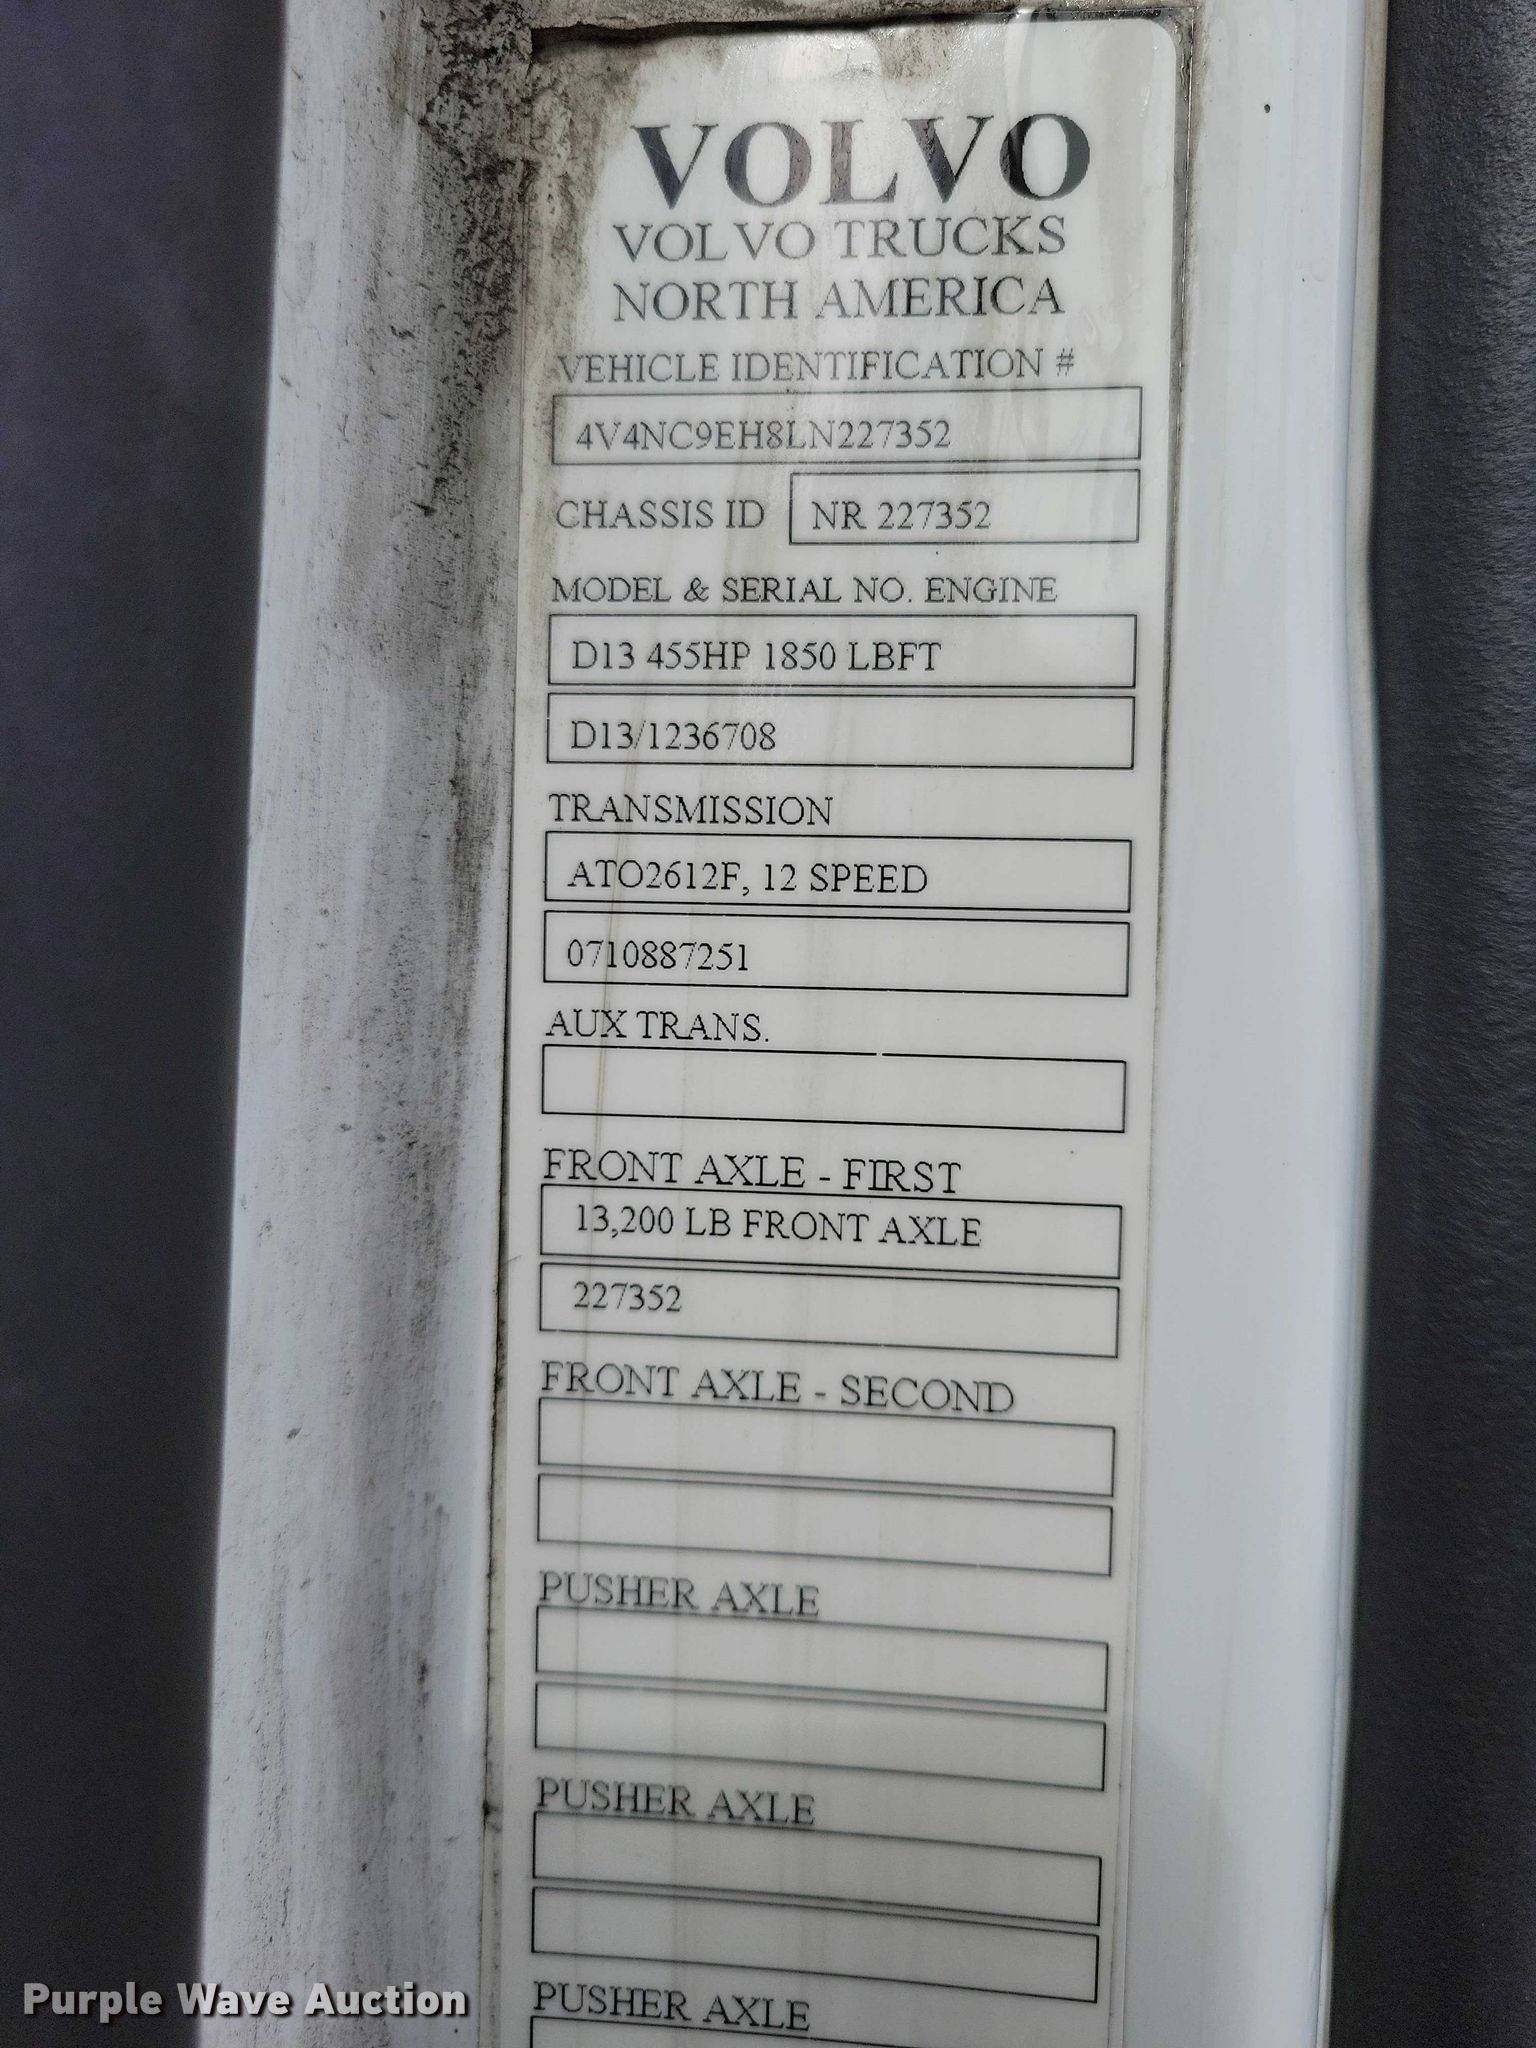 VOLVO
VOLVO TRUCKS
NORTH AMERICA
VEHICLE IDENTIFICATION #
4V4NC9EH8LN227352
CHASSIS ID NR 227352
MODEL & SERIAL NO. ENGINE
D13 455HP 1850 LBFT
D13/1236708
TRANSMISSION
ATO2612F, 12 SPEED
0710887251
AUX TRANS.
FRONT AXLE - FIRST
13,200 LB FRONT AXLE
227352
FRONT AXLE - SECOND
PUSHER AXLE
PUSHER AXLE
PUSHER AXLE
Purple Wave Auction